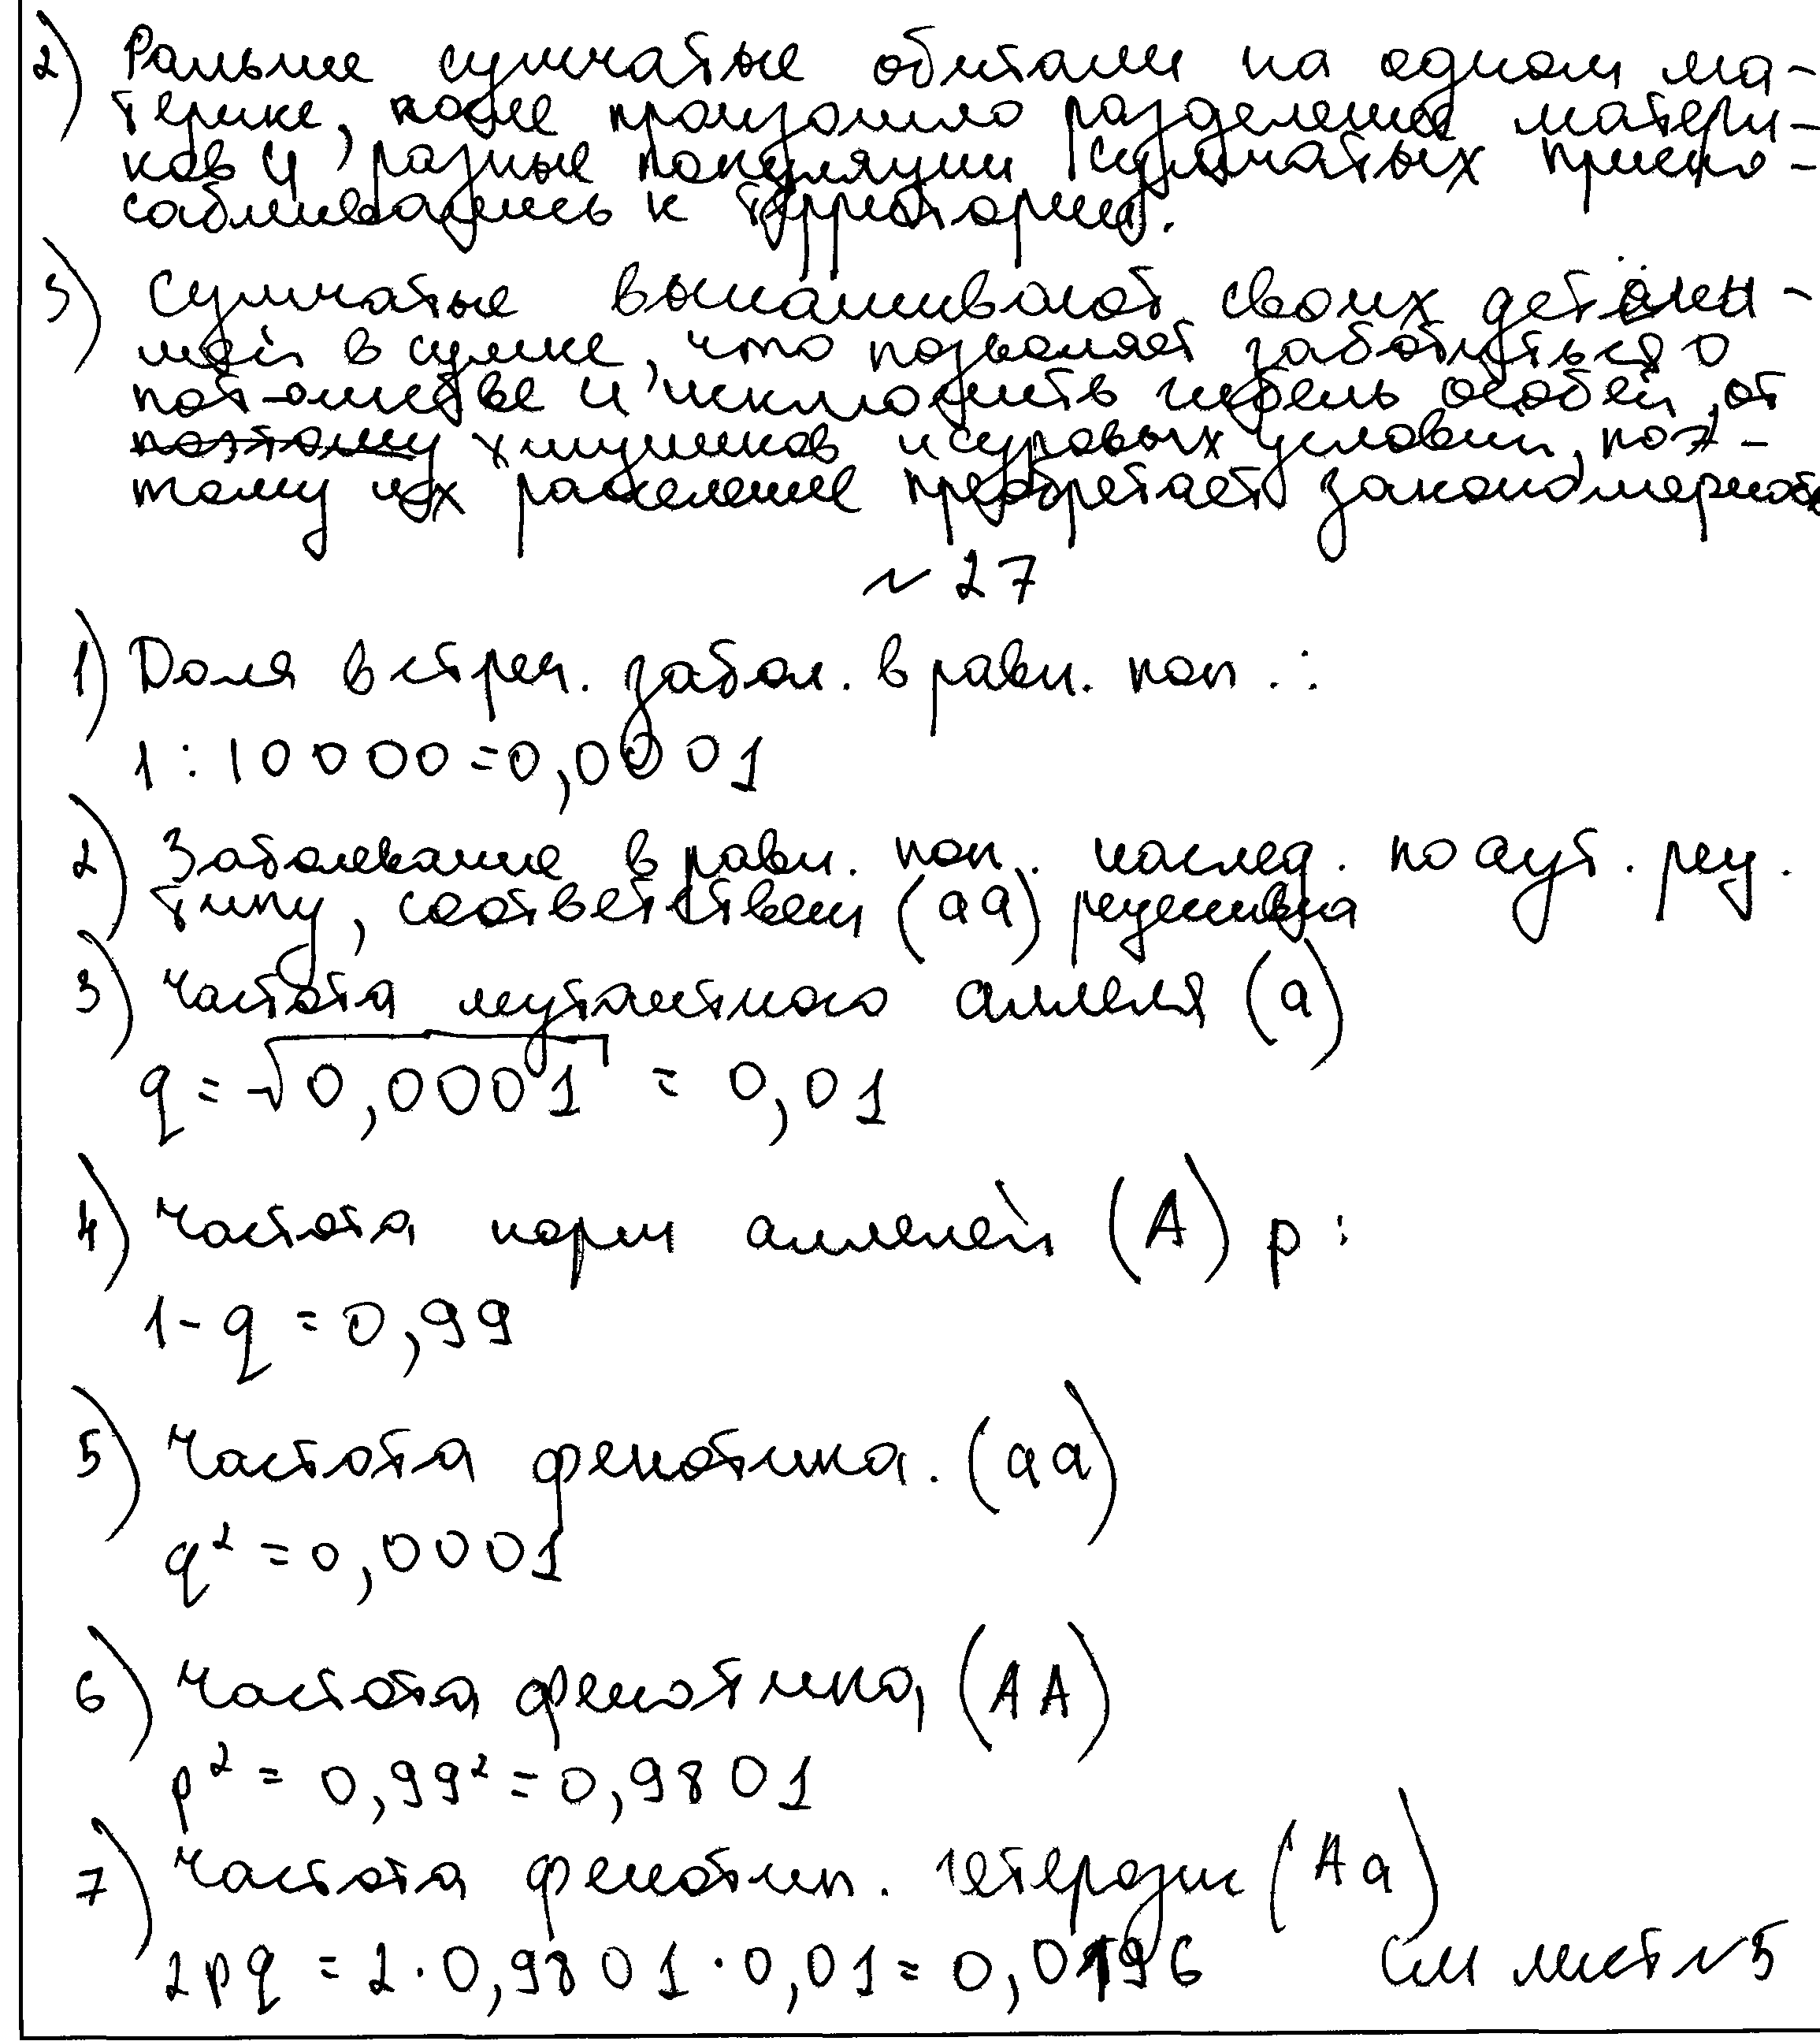 2) Раньше сумчатые обитали на одном ма-
терике, позже произошло разделение матери-
ков и разные популяции сумчатых приспо-
сабливались к территории.
3) Сумчатые вынашивают своих детёны-
шей в сумке, что позволяет заботиться о
потомстве и исключить гибель особей от
поэтому хищников и суровых условий, поэ-
тому их расселение приобретает закономерность
№ 27
1) Доля встреч. забол. в равн. поп.:
1 : 10000 = 0,0001
2) Заболевание в равн. поп. наслед. по аут. рец.
типу, соответствен (aa) рецессивна
3) Частота мутантного аллеля (a)
q = √0,0001 = 0,01
4) Частота норм аллелей (A) p:
1 - q = 0,99
5) Частота фенотипа. (aa)
q² = 0,0001
6) Частота фенотипа (AA)
p² = 0,99² = 0,9801
7) Частота фенотип. гетерозиг (Aa)
2pq = 2 · 0,9801 · 0,01 = 0,0196 см лист №5